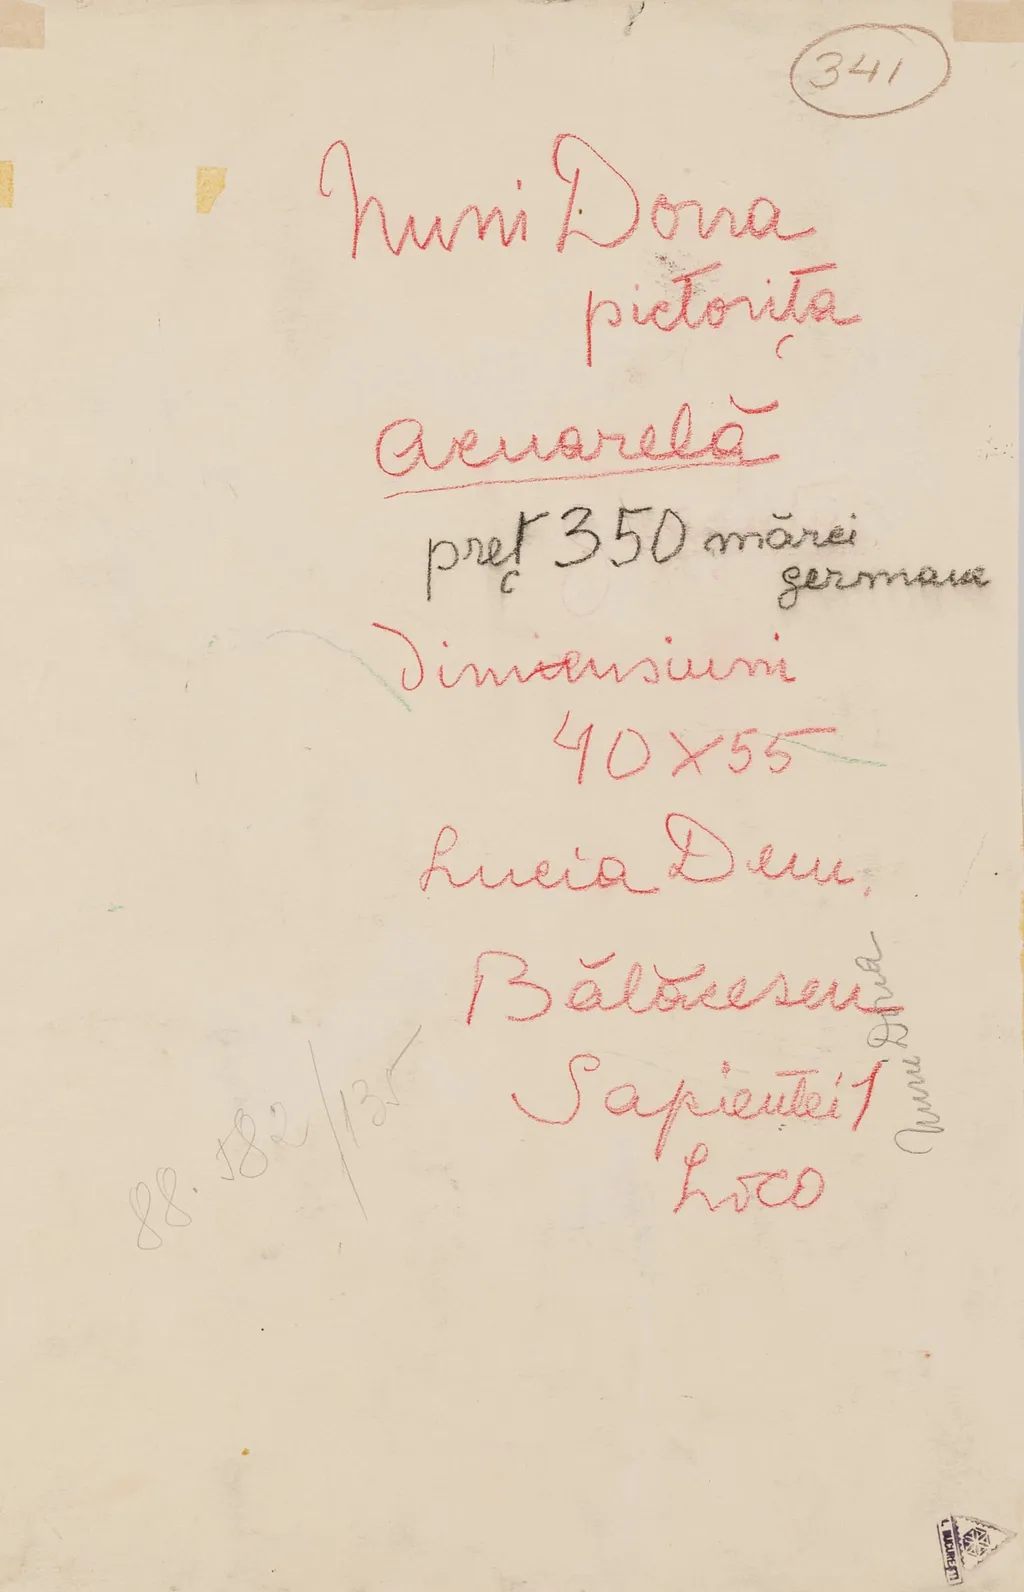 341
Nuni Dona
pictorița
Acuarelă
preț 350 mărci
germane
Dimensiuni
40X55
Lucia Dem.
Bălăcescu
Sapienței 1
Loco
Nuni Dona
88. 582/135
BUCUREȘTI